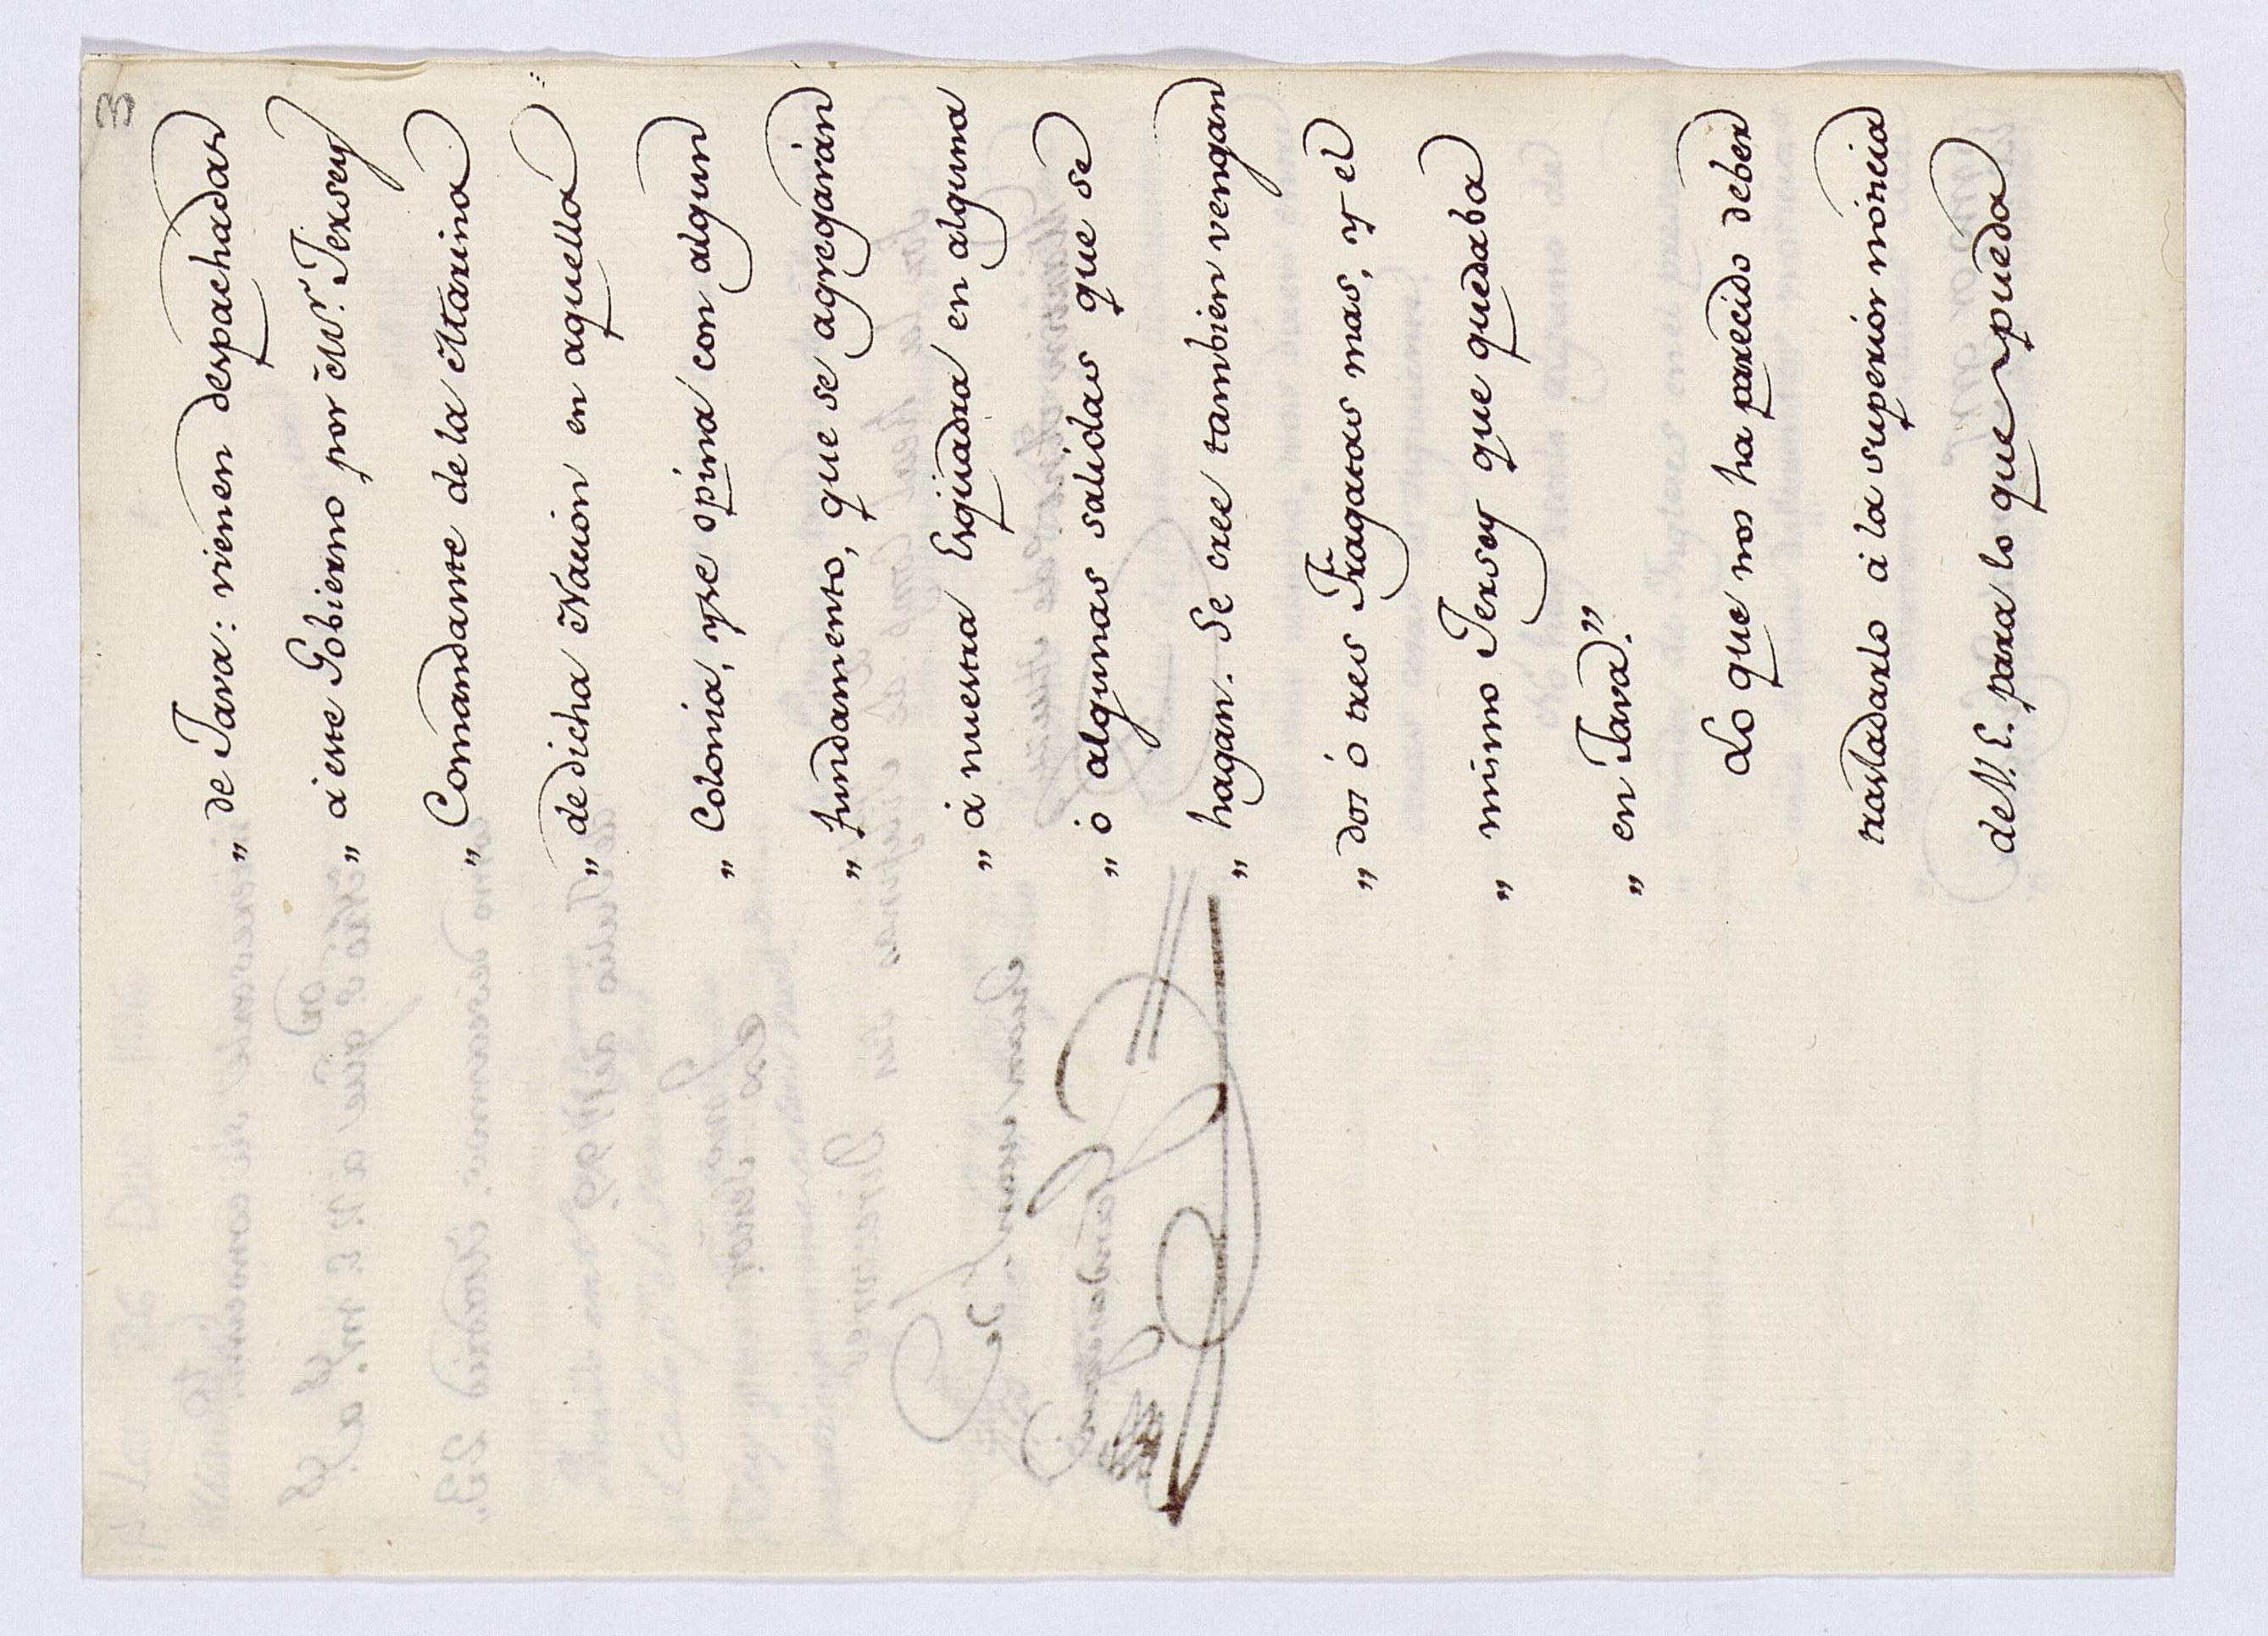 3
„ de Java: vienen despachadas
„ á este Gobierno por Mr. Jersey
„ Comandante de la Marina
„ de dicha Nacion en aquella
„ Colonia, y se opina con algun
„ fundamento, que se agregarán
„ á nuestra Esquadra en alguna
„ ó algunas salidas que se
„ hagan. Se cree tambien vengan
„ dos ó tres Fragatas mas, y el
„ mismo Jersey que quedaba
„ en Java."
Lo que nos ha parecido deber
trasladarlo á la superior noticia
de V. E. para lo que pueda